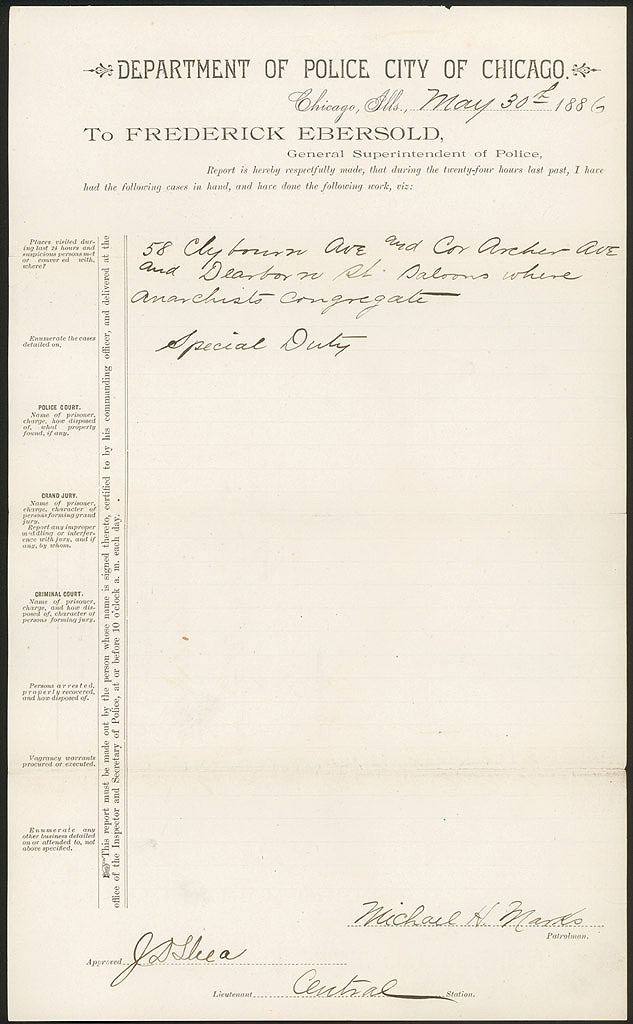 DEPARTMENT OF POLICE CITY OF CHICAGO.
Chicago, Ills., May 30th 1886
To FREDERICK EBERSOLD,
General Superintendent of Police,
Report is hereby respectfully made, that during the twenty-four hours last past, I have
had the following cases in hand, and have done the following work, viz:
Places visited dur-
ing last 24 hours and
suspicious persons met
or conversed with,
where?
58 Clybourn Ave and Cor Archer Ave
and Dearborn St. Saloons where
Anarchists congregate
Enumerate the cases
detailed on.
Special Duty
POLICE COURT.
Name of prisoner,
charge, how disposed
of, what property
found, if any.
GRAND JURY.
Name of prisoner,
charge, character of
persons forming grand
jury.
Report any improper
meddling or interfer-
ence with jury, and if
any, by whom.
CRIMINAL COURT.
Name of prisoner,
charge, and how dis-
posed of, character of
persons forming jury.
Persons arrested,
property recovered,
and how disposed of.
Vagrancy warrants
procured or executed.
Enumerate any
other business detailed
on or attended to, not
above specified.
This report must be made out by the person whose name is signed thereto, certified to by his commanding officer, and delivered at the
office of the Inspector and Secretary of Police, at or before 10 o'clock a. m. each day.
Michael H. Marks
Patrolman.
Approved J D Shea
Lieutenant Central Station.